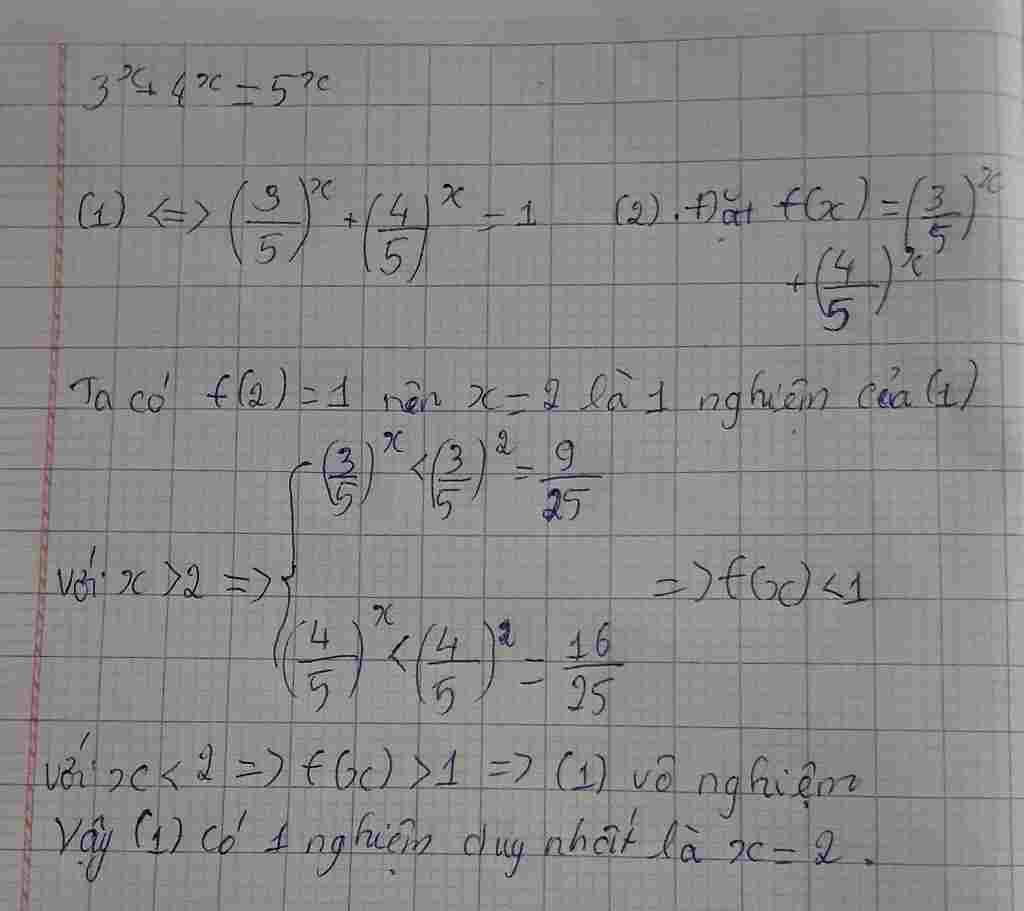 3^x + 4^x = 5^x
(1) <=> (3/5)^x + (4/5)^x = 1 (2). Đặt f(x) = (3/5)^x
+ (4/5)^x
Ta có f(2) = 1 nên x = 2 là 1 nghiệm của (1)
(3/5)^x < (3/5)^2 = 9/25
với x > 2 => { => f(x) < 1
(4/5)^x < (4/5)^2 = 16/25
với x < 2 => f(x) > 1 => (1) vô nghiệm
Vậy (1) có 1 nghiệm duy nhất là x = 2.